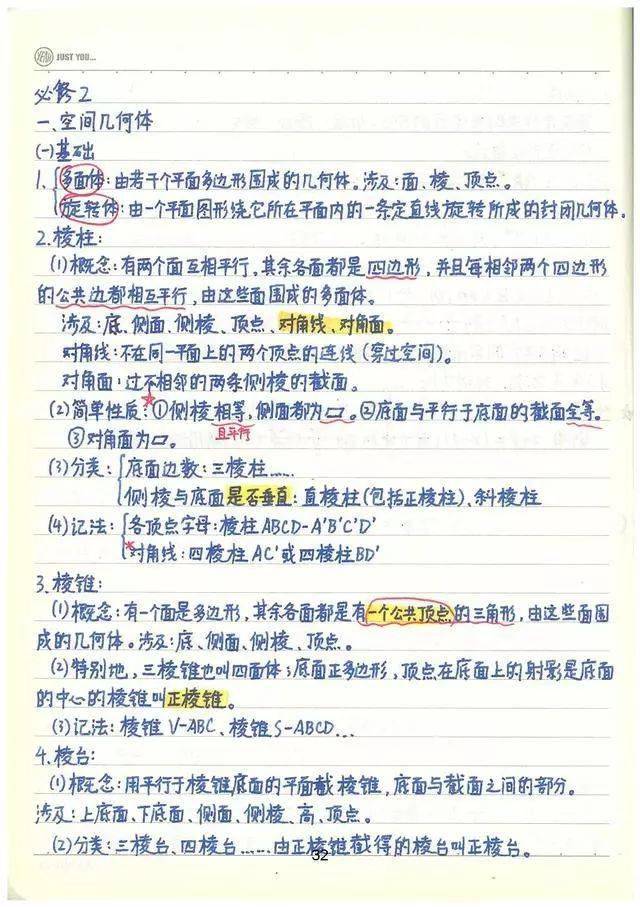 YEAH JUST YOU...
必修2
一、空间几何体
(一)基础
1. 多面体:由若干个平面多边形围成的几何体。涉及:面、棱、顶点。
旋转体:由一个平面图形绕它所在平面内的一条定直线旋转所成的封闭几何体。
2.棱柱:
(1)概念:有两个面互相平行,其余各面都是四边形,并且每相邻两个四边形
的公共边都相互平行,由这些面围成的多面体。
涉及:底、侧面、侧棱、顶点、对角线、对角面。
对角线:不在同一平面上的两个顶点的连线(穿过空间)。
对角面:过不相邻的两条侧棱的截面。
(2)简单性质:①侧棱相等,侧面都为▱。②底面与平行于底面的截面全等。
且平行
③对角面为▱。
(3)分类:底面边数:三棱柱……
侧棱与底面是否垂直:直棱柱(包括正棱柱)、斜棱柱
(4)记法:各顶点字母:棱柱ABCD-A'B'C'D'
*对角线:四棱柱AC'或四棱柱BD'
3.棱锥:
(1)概念:有一个面是多边形,其余各面都是有一个公共顶点的三角形,由这些面围
成的几何体。涉及:底、侧面、侧棱、顶点。
(2)特别地,三棱锥也叫四面体;底面正多边形,顶点在底面上的射影是底面
的中心的棱锥叫正棱锥。
(3)记法:棱锥V-ABC、棱锥S-ABCD...
4.棱台:
(1)概念:用平行于棱锥底面的平面截棱锥,底面与截面之间的部分。
涉及:上底面、下底面、侧面、侧棱、高、顶点。
(2)分类:三棱台、四棱台……由正棱锥截得的棱台叫正棱台。
32